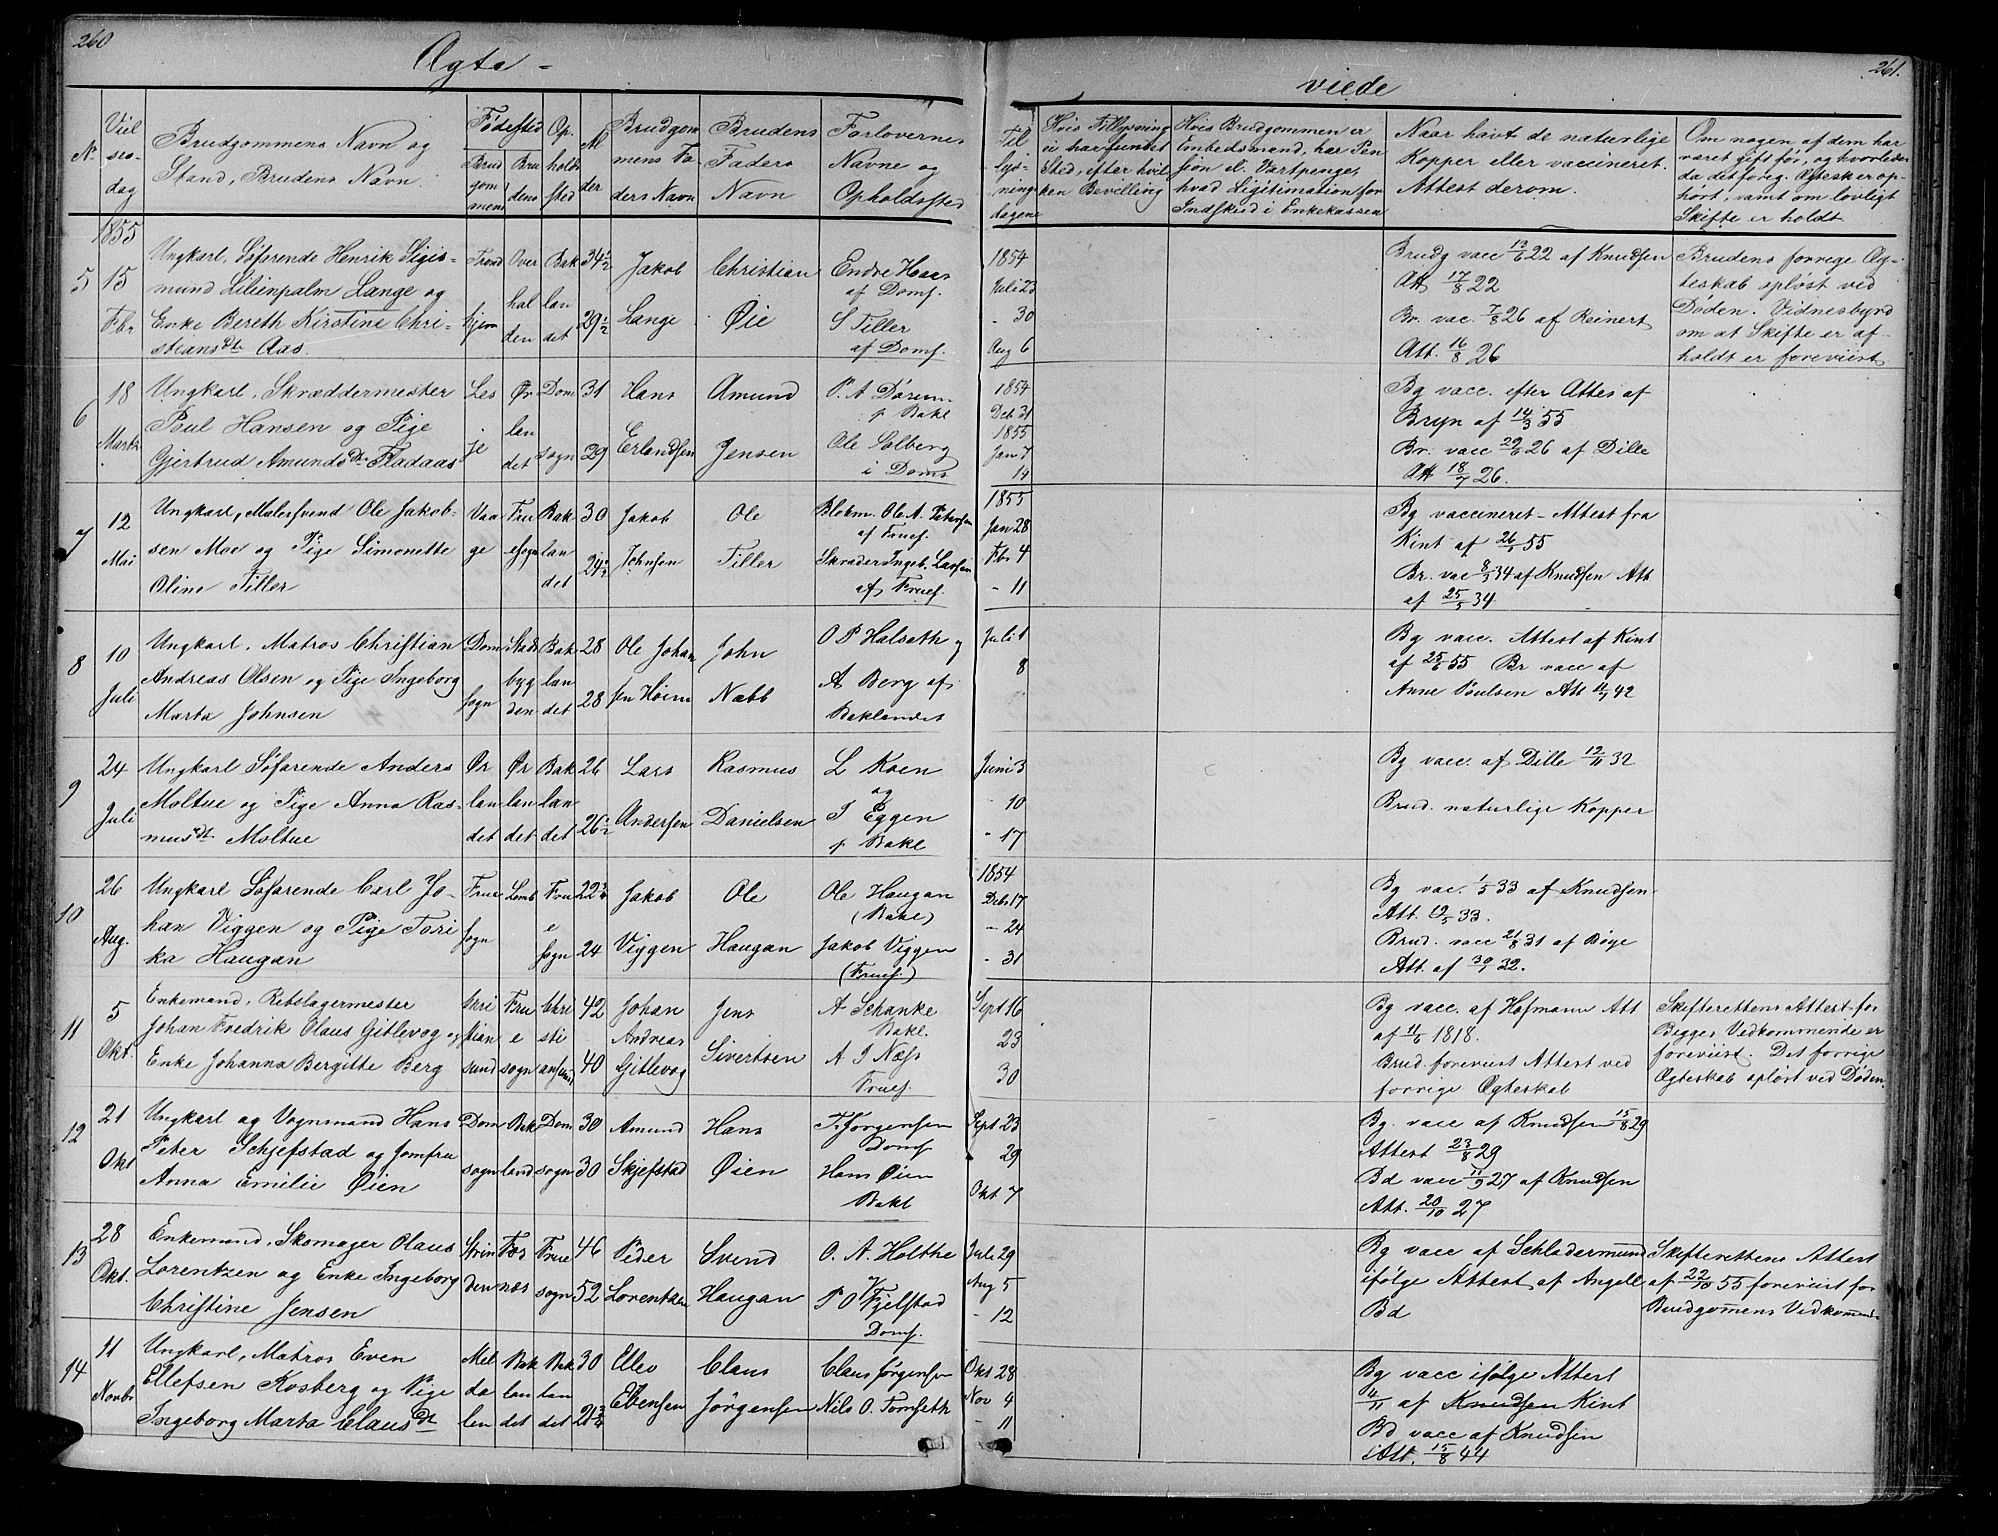 260
Ægte-
viede
261.
No
Viel
ses-
dag
Brudgommens Navn og
Stand, Brudens Navn
Fødested
Brud
gom
mens
Bru
dens
Op.
holds
sted
Al
der
Brudgom
mens Fa
ders Navn
Brudens
Faders
Navn
Forlovernes
Navne og
Opholdssted
Til
lys-
nings
dagene
Hvis Tillysning
ei har fundet
Sted, efter hvil
ken Bevilling
Hvis Brudgommen er
Embedsmand, har Pen
sion el. Vartpenge,
hvad Legitimation for
Indskud i Enkekassen
Naar havt de naturlige
Kopper eller vaccineret.
Attest derom.
Om nogen af dem har
været gift før, og hvorledes
da det foreg. Ægtesk er op-
hørt, samt om lovligt
Skifte er holdt
1855
5
15
Fbr
Ungkarl, Søfarende Henrik Sigis-
mund Lilienpalm Lange og
Enke Bereth Kirstine Chri-
stians Dtr Aas.
Trond
hjem
Over
hal
den
Bak
lan
det
34 1/2
29 1/2
Jakob
Lange
Christian
Øie
Endre Haas
af Doms.
S Tiller
af Doms.
1854
Juli 23
- 30
Aug 6
Brudg vacc 13/6 22 af Knudsen
Att 17/8 22
Br. vac. 7/8 26 af Reinert
Att. 16/8 26
Brudens forrige Æg-
teskab opløst ved
Døden. Vidnesbyrd
om at Skifte er af-
holdt er foreviist
6
18
Marts
Ungkarl, Skræddermester
Poul Hansen og Pige
Gjertrud Amunds Dtr Fladaas
Les
je
Ør
lan
det
Dom
sogn
31
29
Hans
Erlandsen
Amund
Jensen
P. A. Dørum
p Bakl
Ole Solberg
i Doms
1854
Deb. 31
1855
Jan 7
14
Bg vacc. efter Attes af
Bryn af 14/3 55
Br. vacc 29/6 26 af Dille
Att 18/7 26.
7
12
Mai
Ungkarl, Malersvend Ole Jakob-
sen Moe og Pige Simonette
Oline Tiller
Vaa
ge
Fru
esogn
Bak
lan
det
30
24 1/2
Jakob
Johnsen
Ole
Tiller
Blokm. Ole A. Petersen
af Frues.
Skræder Ingeb. Larsen
af Frues.
1855
Jan 28
Fbr 4
- 11
Bg vaccineret - Attest fra
Kint af 26/1 55
Br. vac 8/5 34 af Knudsen Att
af 25/5 34
8
10
Juli
Ungkarl, Matros Christian
Andreas Olsen og Pige Ingeborg
Marta Johnsen
Dom
sogn
Stads
byg
den
Bak
lan
det
28
28
Ole Johan
sen Høiem
John
Næbb
O P Halseth og
A Berg af
Baklandet
Juli 1
8
Bg vacc. Attest af Kint
af 25/6 55 Br vacc af
Anne Poulsen Att 11/7 42
9
24
Juli
Ungkarl Søfarende Anders
Moltue og Pige Anna Ras-
mus Dt. Moltue
Ør
lan
det
Ør
lan
det
Bak
lan
det
26
26 1/2
Lars
Andersen
Rasmus
Danielsen
L Koen
og
I Eggen
p Bakl
Juni 3
- 10
- 17
Bg vacc. af Dille 12/11 32
Brud. naturlige Kopper
10
26
Aug.
Ungkarl Søfarende Carl Jo-
han Viggen og Pige Tori
ka Haugan
Frue
sogn
Lemb
Fru
e
sogn
22 3/4
24
Jakob
Viggen
Ole
Haugan
Ole Haugan
(Bakl)
Jakob Viggen
(Frues.)
1854
Debr 17
- 24
- 31
Bg vac. 1/5 33 af Knudsen
Att. 19/5 33.
Brud. vacc 21/8 31 af Bøye
Att. af 30/1 32.
11
5
Okt.
Enkemand, Rebslagermester
Johan Fredrik Olaus Gitlevog og
Enke Johanna Bergitte Berg
Chri
stian
sund
Fru
e
sogn
Chri
sti
ansund
42
40
Johan
Andreas
Gitlevog
Jens
Sivertsen
A Schanke
Bakl.
A I Næss
Frues.
Sept 16
23
30
Bg vacc. af Hofmann Att
af 11/6 1818.
Brud foreviist Attest ved
forrige Ægteskab
Skifterettens Attest for
Bigges Vedkommende er
foreviist. Det forrige
Ægteskab opløst ved Døden
12
21
Okt
Ungkarl og Vognmand Hans
Peter Schjefstad og Jomfru
Anna Emilie Øien
Dom
sogn
Bak
land
Dom
sogn
30
30
Amund
Skjefstad
Hans
Øien
F. Jorgensen
Doms
Hans Øien
Bakl
Sept 23
29
Okt 7
Bg. vacc af Knudsen 15/8 29
Attest 23/8 29
Bd vacc 11/9 27 af Knudsen
Att. 20/10 27
13
28
Okt.
Enkemand, Skomager Olaus
Lorentzen og Enke Ingeborg
Christine Jensen
Strin
den
Fos
næs
Frue
sogn
46
52
Peder
Lorentzen
Svend
Haugan
O. A. Holthe
P O Fjelstad
Doms.
Juli 29
Aug 5
- 12
Bg vacc af Schladermund
ifølge Attest af Angell
Bd
Skifterettens Attest
af 22/10 55 foreviist for
Brudgomens Vedkomend.
14
11
Novbr
Ungkarl, Matros Even
Ellefsen Kosberg og Pige
Ingeborg Marta Claus Dt
Mel
da
len
Bak
lan
det
Bak
lan
det
30
21 3/4
Ellev
Evensen
Claus
Jørgensen
Claus Jørgensen
Nils O. Tomseth
Okt 28
Nov 4
- 11
Bg vacc ifølge Attest
4/11 af Knudsen Kint
Bd vacc af Knudsen
Att. 15/8 44